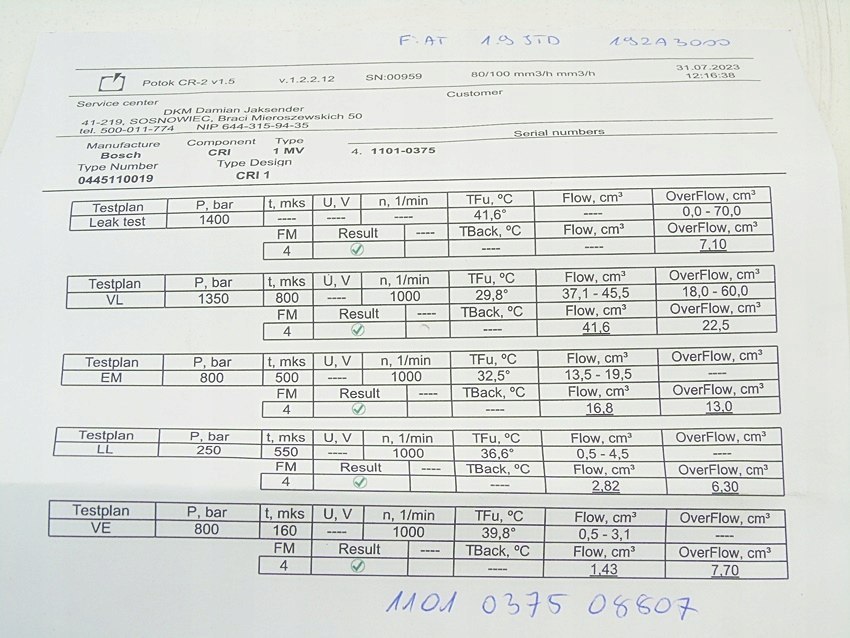 FiAT 1.9 JTD 192A3000
Potok CR-2 v1.5 v.1.2.2.12 SN:00959 80/100 mm3/h mm3/h 31.07.2023 12:16:38
Service center Customer
DKM Damian Jaksender
41-219, SOSNOWIEC, Braci Mieroszewskich 50
tel. 500-011-774 NIP 644-315-94-35
Manufacture Component Type Serial numbers
Bosch CRI 1 MV 4. 1101-0375
Type Number Type Design
0445110019 CRI 1
Testplan P, bar t, mks U, V n, 1/min TFu, ºC Flow, cm³ OverFlow, cm³
Leak test 1400 ---- ---- ---- 41,6° ---- 0,0 - 70,0
FM Result ---- TBack, ºC Flow, cm³ OverFlow, cm³
4 ---- ---- 7,10
Testplan P, bar t, mks U, V n, 1/min TFu, ºC Flow, cm³ OverFlow, cm³
VL 1350 800 ---- 1000 29,8° 37,1 - 45,5 18,0 - 60,0
FM Result ---- TBack, ºC Flow, cm³ OverFlow, cm³
4 ---- 41,6 22,5
Testplan P, bar t, mks U, V n, 1/min TFu, ºC Flow, cm³ OverFlow, cm³
EM 800 500 ---- 1000 32,5° 13,5 - 19,5 ----
FM Result ---- TBack, ºC Flow, cm³ OverFlow, cm³
4 ---- 16,8 13,0
Testplan P, bar t, mks U, V n, 1/min TFu, ºC Flow, cm³ OverFlow, cm³
LL 250 550 ---- 1000 36,6° 0,5 - 4,5 ----
FM Result ---- TBack, ºC Flow, cm³ OverFlow, cm³
4 ---- 2,82 6,30
Testplan P, bar t, mks U, V n, 1/min TFu, ºC Flow, cm³ OverFlow, cm³
VE 800 160 ---- 1000 39,8° 0,5 - 3,1 ----
FM Result ---- TBack, ºC Flow, cm³ OverFlow, cm³
4 ---- 1,43 7,70
1101 0375 08807